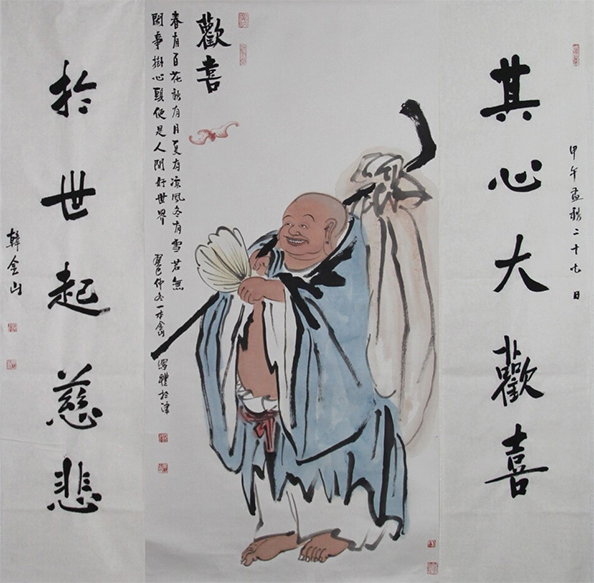 甲午孟秋二十九日
其心大歡喜
歡喜
春有百花秋有月夏有涼風冬有雪若無
閑事掛心頭便是人間好世界
癸巳仲冬一
於世起慈悲
韓金山